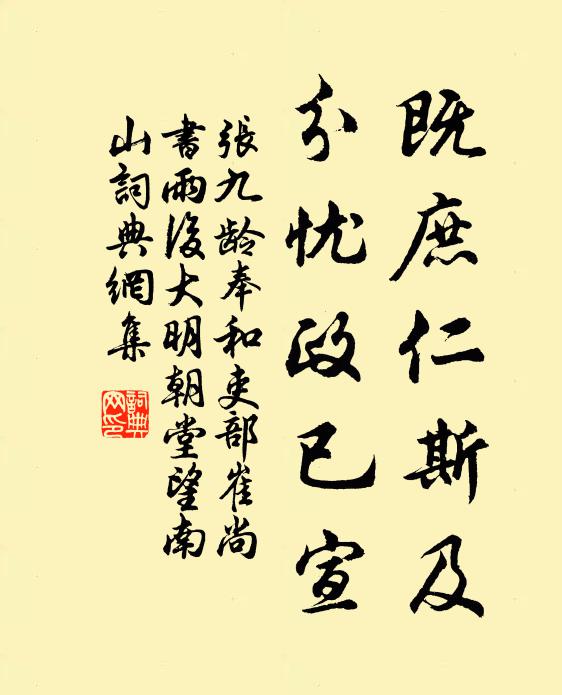 既庶仁斯及
分忧政已宣
張九龄奉和吏部崔尚
書雨後大明朝堂望南
山詞典網集
詞典
网印